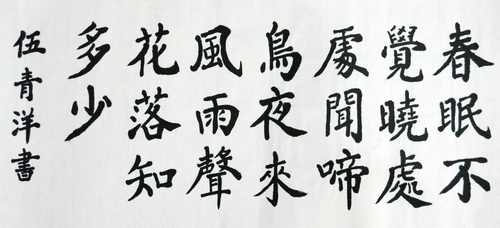 春眠不
覺曉處
處聞啼
鳥夜來
風雨聲
花落知
多少
伍青洋書